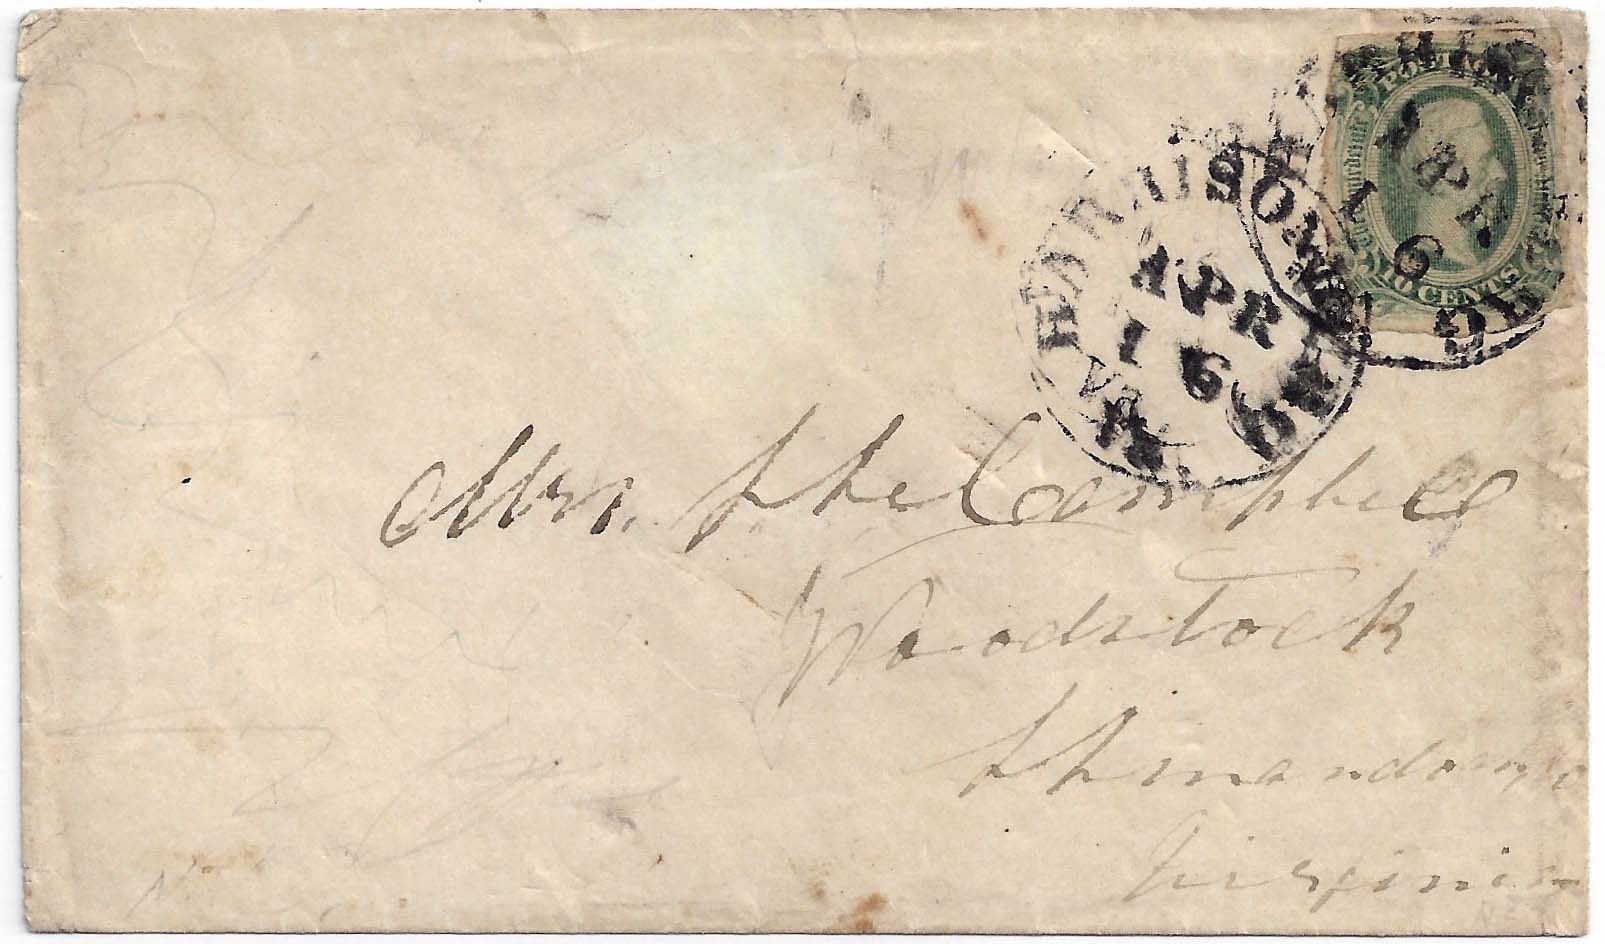 HARRISONBURG
APR
16
VA
HARRISONBURG
APR
16
POSTAGE
10 CENTS
Mrs. She Campbell
Woodstock
Shenandoah
Virginia